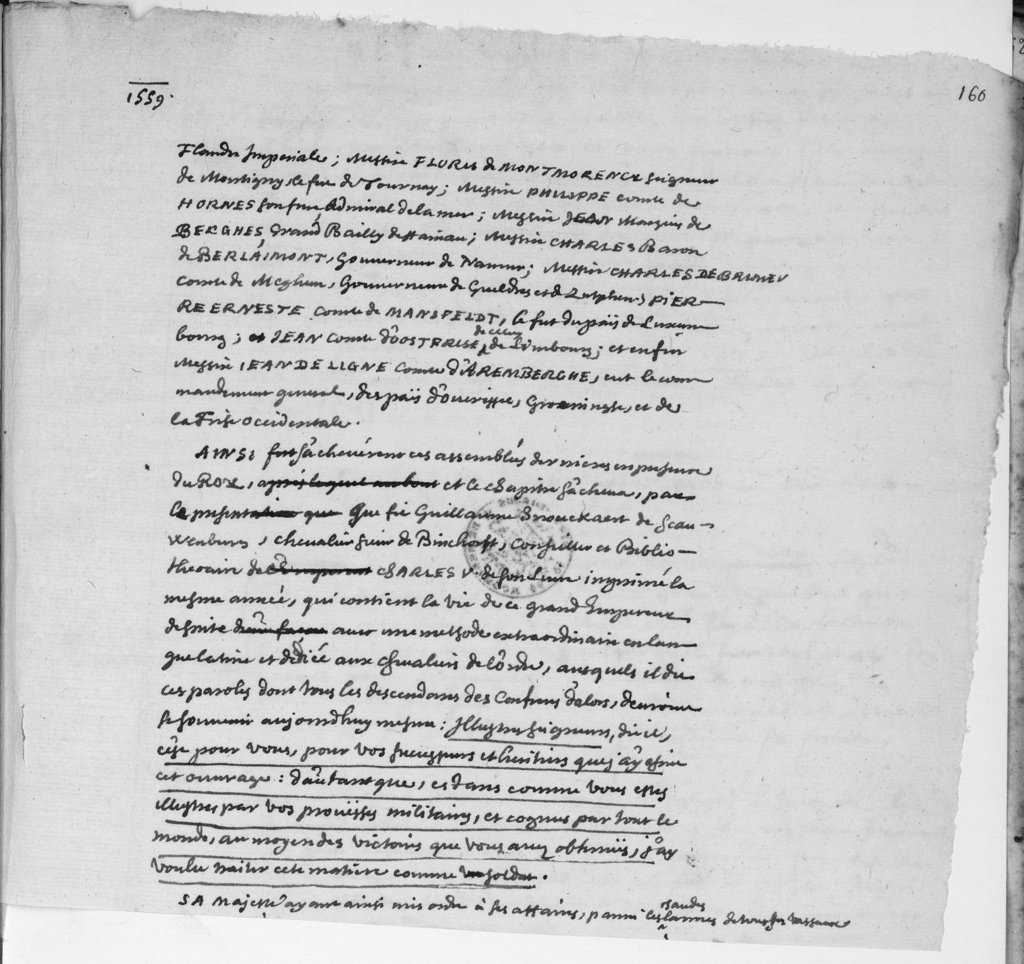 1559.
160
Flandre Imperiale; Messire FLORIS de MONTMORENCY seigneur
de Montigny, le fut de Tournay; Messire PHILIPPE comte de
HORNES son frere, Admiral de la mer; Messire JEAN Marquis de
BERGHES Grand Bailly de Hainau; Messire CHARLES Baron
de BERLAIMONT, Gouverneur de Namur; Messire CHARLES DE BRIMEV
Comte de Meghem, Gouverneur de Gueldres et de Zutphen; PIER-
RE ERNESTE comte de MANSFELDT, le fut du païs de Luxem
bourg; et JEAN Comte d'OOSTFRISE, de celuy de Limbourg; et enfin
Messire JEAN DE LIGNE Comte d'AREMBERGHE, eut le com
mandement general, des païs d'Overissel, Groeninghe, et de
la Frise occidentale.
AINSI s'acheverent ces assemblées dernieres en presence
du ROY, et le chapitre s'acheva, par
la presentation que fit Guillaume Snouckaert de Scau-
wenburg, chevalier sieur de Binchorst, Conseiller et Biblio-
thecaire de CHARLES V. de son Livre imprimé la
mesme année, qui contient la vie de ce grand Empereur
descrite avec une methode extraordinaire en lan
gue latine et dediée aux chevaliers de l'ordre, ausquels il dit
ces paroles dont tous les descendans des Confreres d'alors, devroient
se souvenir aujourdhuy mesme: Illustres seigneurs, dit il,
c'est pour vous, pour vos successeurs et heritiers que j'ay escrit
cet ouvrage: d'autant que, estans comme vous estes
illustres par vos proüesses militaires, et cognus par tout le
monde, au moyen des victoires que vous avez obtenues, j'ay
voulu traiter cete matiere comme soldat.
SA Majesté ayant ainsi mis ordre à ses affaires, parmi les larmes de tous ses vassaux